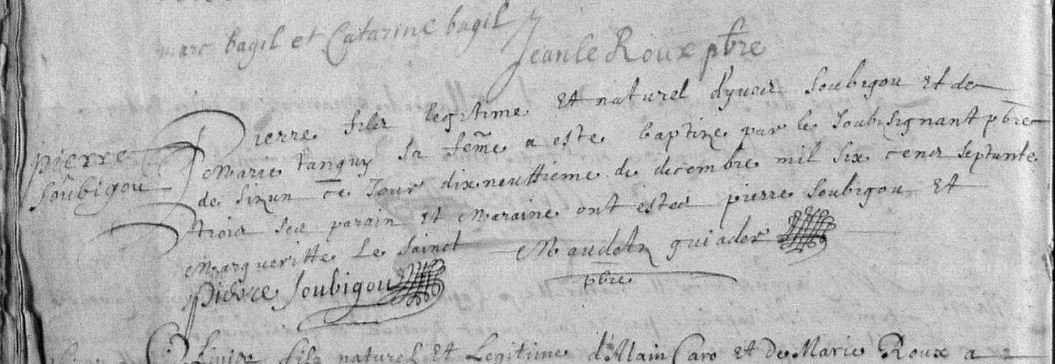 marc bagil et Catarine bagil
Jean le Roux pbre
pierre
Soubigou
Pierre filz legitime Et naturel d'yves Soubigou Et de
Marie tanguy sa feme a este baptize par le soubsignant pbre
de Sizun ce Jour dixneuffieme de decembre mil six cens septante
trois ses parain Et Maraine ont estes pierre Soubigou Et
Margueritte Le Sainct
Maudetz guiader
pbre
pierre Soubigou
filz naturel Et Legitime d'Allain Caro et de Marie Roux a